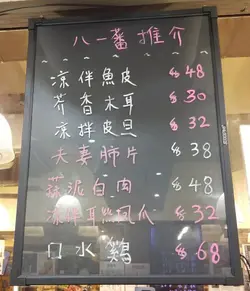 八一蕃推介
涼伴魚皮 $48
芥香木耳 $30
涼拌皮旦 $32
夫妻肺片 $38
蒜泥白肉 $48
涼伴耳絲鳳爪 $32
口水鷄 $68